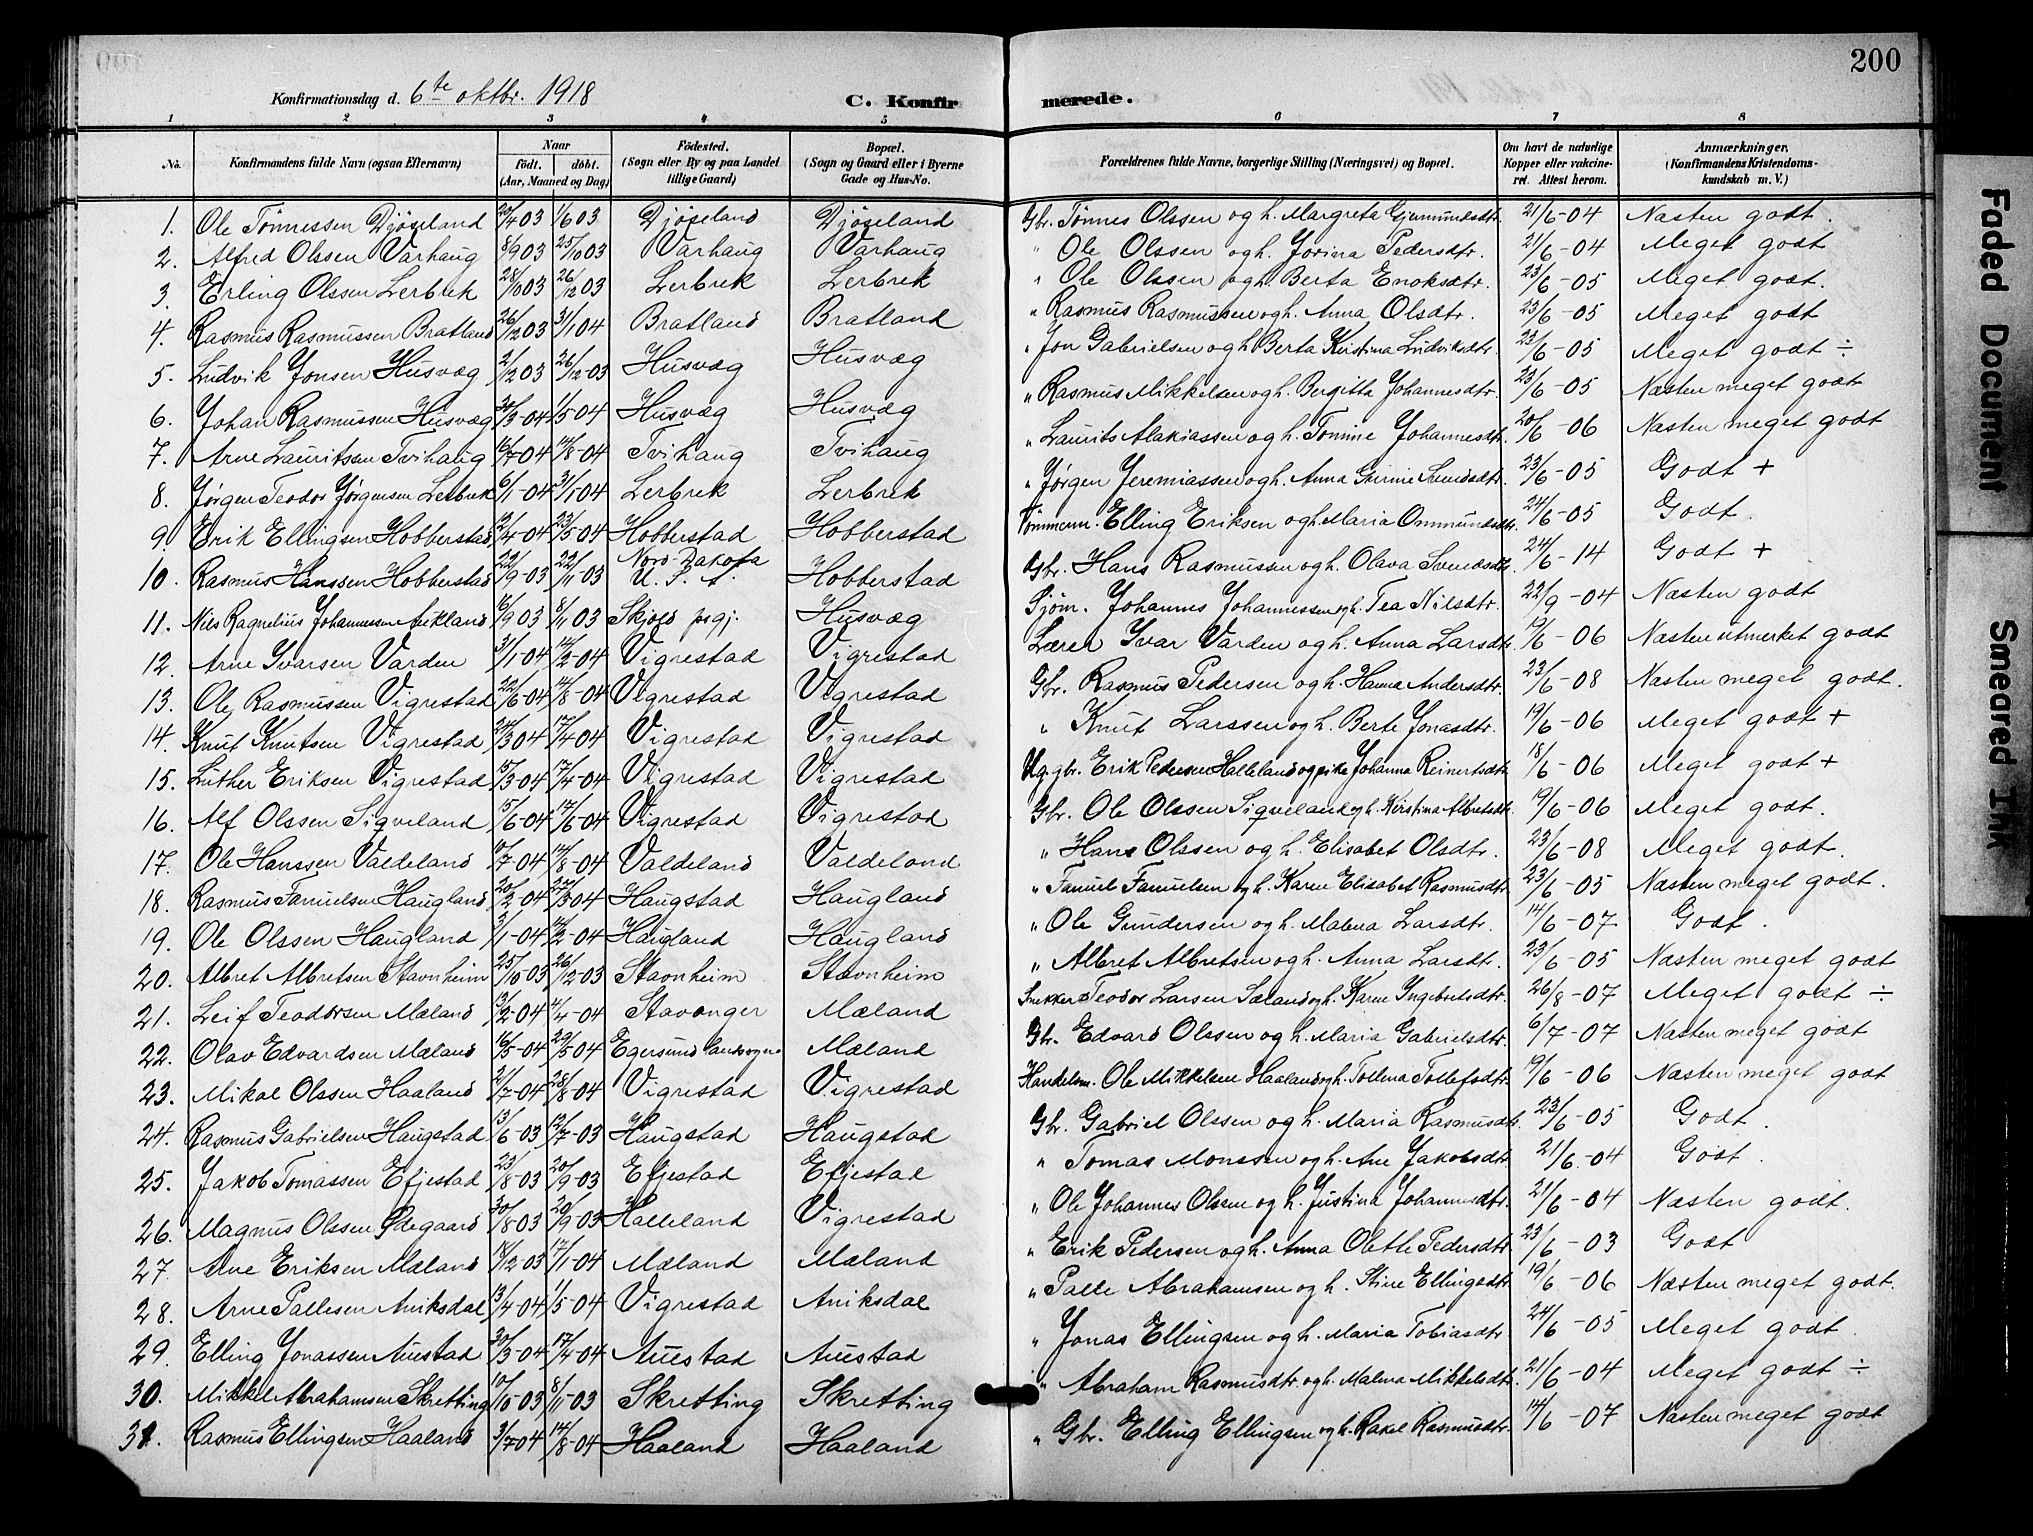 200
Konfirmationsdag d. 6te oktbr. 1918 C. Konfirmerede.
1 2 3 4 5 6 7 8
No. Konfirmandens fulde Navn (ogsaa Efternavn) Naar födt. döbt. (Aar, Maaned og Dag) Födested. (Sogn eller By og paa Landet tillige Gaard) Bopæl. (Sogn og Gaard eller i Byerne Gade og Hus-No. Forældrenes fulde Navne, borgerlige Stilling (Næringsvei) og Bopæl. Om havt de naturlige Kopper eller vakcineret. Attest herom. Anmærkninger. (Konfirmandens Kristendomskundskab m. V.)
1. Ole Tønnessen Djöseland /4 03 1/6 03 Djöseland Djöseland Gbr. Tønnes Olssen og h. Margreta Gjermundsdtr. 21/6-04 Næsten godt.
2. Alfred Olssen Varhaug 8/9 03 25/10 03 Varhaug Varhaug " Ole Olssen og h. Jorina Pedersdtr. 21/6-04 Meget godt
3. Erling Olssen Lerbrek 28/10 03 26/12 03 Lerbrek Lerbrek " Ole Olssen og h. Berta Enoksdtr. 23/6-05 Meget godt.
4. Rasmus Rasmussen Bratland 26/12 03 3/1 04 Bratland Bratland " Rasmus Rasmussen og h. Anna Olsdtr. 23/6-05 Meget godt
5. Ludvik Jonsen Husvæg 2/12 03 26/12-03 Husvæg Husvæg " Jon Gabrielsen og h Berta Kristina Ludviksdtr. 23/6-05 Meget godt ÷
6. Johan Rasmussen Husvæg /3-04 1/5 04 Husvæg Husvæg " Rasmus Mikkelsen og h. Bergitta Johannesdtr. 23/6-05 Næsten meget godt
7. Arne Lauritsen Tvihaug 16/7-04 14/8-04 Tvihaug Tvihaug " Laurits Alakiassen og h. Tomine Johannesdtr. 20/6-06 Næsten meget godt
8. Jørgen Teodor Jørgensen Lerbrek 6/1-04 31/1 04 Lerbrek Lerbrek " Jørgen Jeremiassen og h. Anna Gurine Svendsdtr. 23/6-05 Godt +
9. Erik Ellingsen Hobberstad /4-04 23/5-04 Hobberstad Hobberstad Tømmerm. Elling Eriksen og h. Maria Ommundsdtr. 24/6-05 Godt
10. Rasmus Hanssen Hobberstad 22/9-03 22/11-03 Nord-Dakota U. S. A. Hobberstad Gbr. Hans Rasmussen og h. Olava Svendsdtr. 24/6-14 Godt +
11. Nils Ragnelius Johannessen 16/9 03 8/11 03 Skjold prgj. Husvæg Sjøm. Johannes Johannessen og h. Tea Nilsdtr. 22/9-04 Næsten godt
12. Arne Ivarsen Varden 3/1-04 14/2-04 Vigrestad Vigrestad Lærer Ivar Varden og h. Anna Larsdtr. 19/6-06 Næsten utmerket godt
13. Ole Rasmussen Vigrestad 22/6-04 14/8-04 Vigrestad Vigrestad Gbr. Rasmus Pedersen og h. Hanna Andersdtr. 23/6-08 Næsten meget godt.
14. Knut Knutsen Vigrestad /3 04 17/4-04 Vigrestad Vigrestad " Knut Larssen og h. Berte Jonasdtr. 19/6-06 Meget godt +
15. Luther Eriksen Vigrestad 15/3-04 17/4-04 Vigrestad Vigrestad Ug. gbr. Erik Pedersen Halleland og pike Johanna Reinertsdtr. 18/6-06 Meget godt +
16. Alf Olssen Sigveland /6-04 /6-04 Vigrestad Vigrestad Gbr. Ole Olssen Sigveland og h. Kirstina Albretsdtr. 19/6-06 Meget godt.
17. Ole Hanssen Valdeland 10/7-04 14/8-04 Valdeland Valdeland " Hans Olssen og h. Elisabet Olsdtr. 23/6-08 Meget godt.
18. Rasmus Fanuelsen Haugland 20/2-04 27/3 04 Haugstad Haugland " Fanuel Fanuelsen og h. Karen Elisabet Rasmusdtr. 23/6-05 Næsten meget godt.
19. Ole Olssen Haugland 3/1-04 14/2-04 Haugland Haugland " Ole Gundersen og h. Malena Larsdtr. 14/6-07 Godt.
20. Albret Albretsen Stavnheim 25/10 03 26/12-03 Stavnheim Stavnheim " Albret Albretsen og h. Anna Larsdtr. 23/6-05 Næsten meget godt
21. Leif Teodorsen Mæland 13/2-04 4/4-04 Stavanger Mæland Snekker Teodor Larsen Søland og h. Karen Ingebretsdtr. 26/8-07 Meget godt ÷
22. Olav Edvardsen Mæland 16/5-04 29/5 04 Egersund landsogn Mæland Gbr. Edvard Olssen og h. Maria Gabrielsdtr. 6/7-07 Næsten meget godt
23. Mikal Olssen Haaland 2/7-04 28/8-04 Vigrestad Vigrestad Handelsm. Ole Mikkelsen Haaland og h. Tollena Tollefsdtr. 19/6-06 Næsten meget godt
24. Rasmus Gabrielsen Haugstad 13/6-03 12/7-03 Haugstad Haugstad Gbr. Gabriel Olssen og h. Maria Rasmusdtr. 23/6-05 Godt.
25. Jakob Tomassen Efjestad 23/8-03 20/9-03 Efjestad Efjestad " Tomas Monssen og h. Ane Jakobsdtr. 21/6-04 Godt.
26. Magnus Olssen Ødegaard 30/8-03 20/9-03 Halleland Vigrestad " Ole Johannes Olssen og h. Justina Johannesdtr. 21/6-04 Næsten godt.
27. Arne Eriksen Mæland 18/12-03 17/1-04 Mæland Mæland " Erik Pedersen og h. Anna Olette Pedersdtr. 23/6-03 Godt
28. Arne Pallesen Aniksdal 13/4-04 1/5-04 Vigrestad Aniksdal " Palle Abrahamsen og h. Stine Ellingsdtr. 19/6-06 Næsten meget godt.
29. Elling Jonassen Auestad 30/3-04 17/4-04 Auestad Auestad " Jonas Ellingsen og h. Maria Tobiasdtr. 24/6-05 Meget godt.
30. Mikkel Abrahamsen Skretting 10/10-03 8/11-03 Skretting Skretting " Abraham Rasmusdtr. og h. Malena Mikkelsdtr. 21/6-04 Meget godt ÷
31. Rasmus Ellingsen Haaland 3/7 04 14/8-04 Haaland Haaland " Gbr. Elling Ellingsen og h. Rakel Rasmusdtr. 14/6-07 Næsten meget godt
Faded Document
Smeared Ink